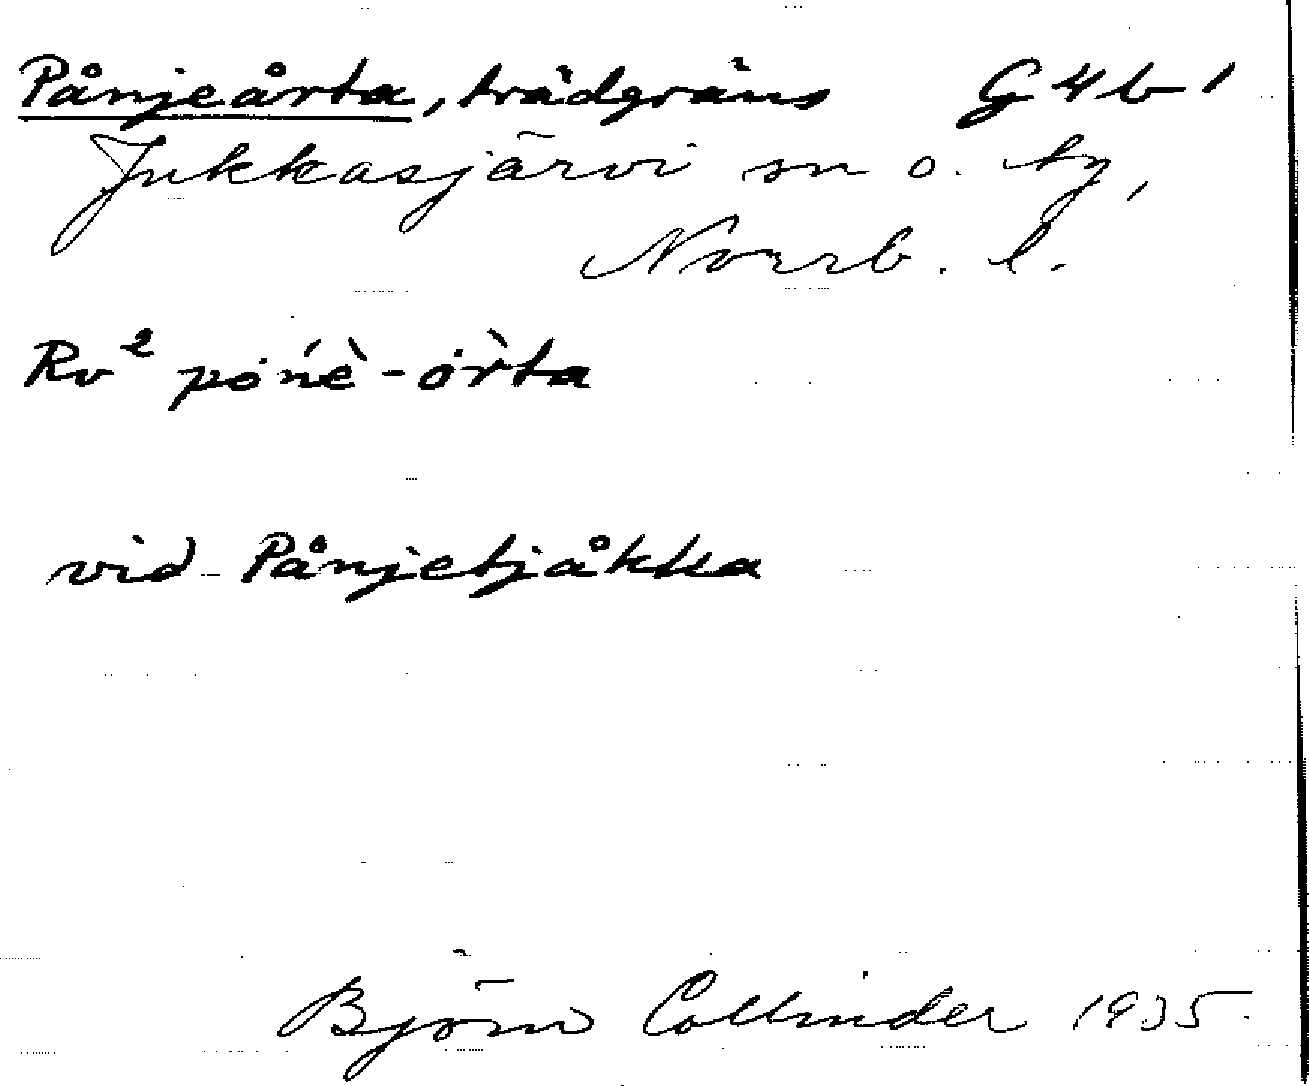 Pånjeårta, trädgräns G 4 b 1
Jukkasjärvi sn o. tg,
Norrb. l.
Rv² pȯńè-ȯr̀ta
vid Pånjetjåkka
Björn Collinder 1935